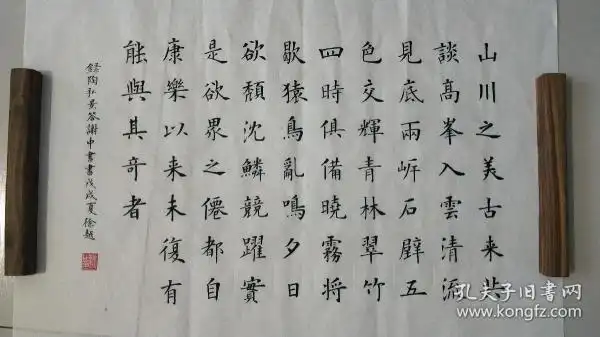 山川之美古来共
談高峯入雲清流
見底兩岸石壁五
色交輝青林翠竹
四時俱備曉霧将
歇猿鳥亂鳴夕日
欲頹沈鱗競躍實
是欲界之僊都自
康樂以来未復有
能與其奇者
録陶弘景答謝中書書戊戌夏徐越
孔夫子旧书网
www.kongfz.com